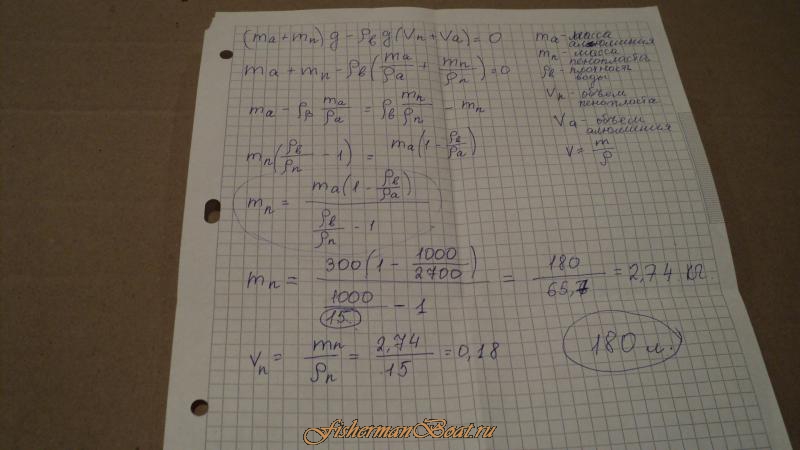 (ma + mп) g - ρв g (Vп + Va) = 0
ma + mп - ρв (ma/ρa + mп/ρп) = 0
ma - ρв ma/ρa = ρв mп/ρп - mп
mп (ρв/ρп - 1) = ma (1 - ρв/ρa)
mп = ma (1 - ρв/ρa) / (ρв/ρп - 1)
mп = 300 (1 - 1000/2700) / (1000/15 - 1) = 180 / 65,7 = 2,74 кг
Vп = mп/ρп = 2,74/15 = 0,18
180 л.
ma - масса
алюминия
mп - масса
пенопласта
ρв - плотность
воды
Vп - объем
пенопласта
Va - объем
алюминия
V = m/ρ
fishermanBoat.ru